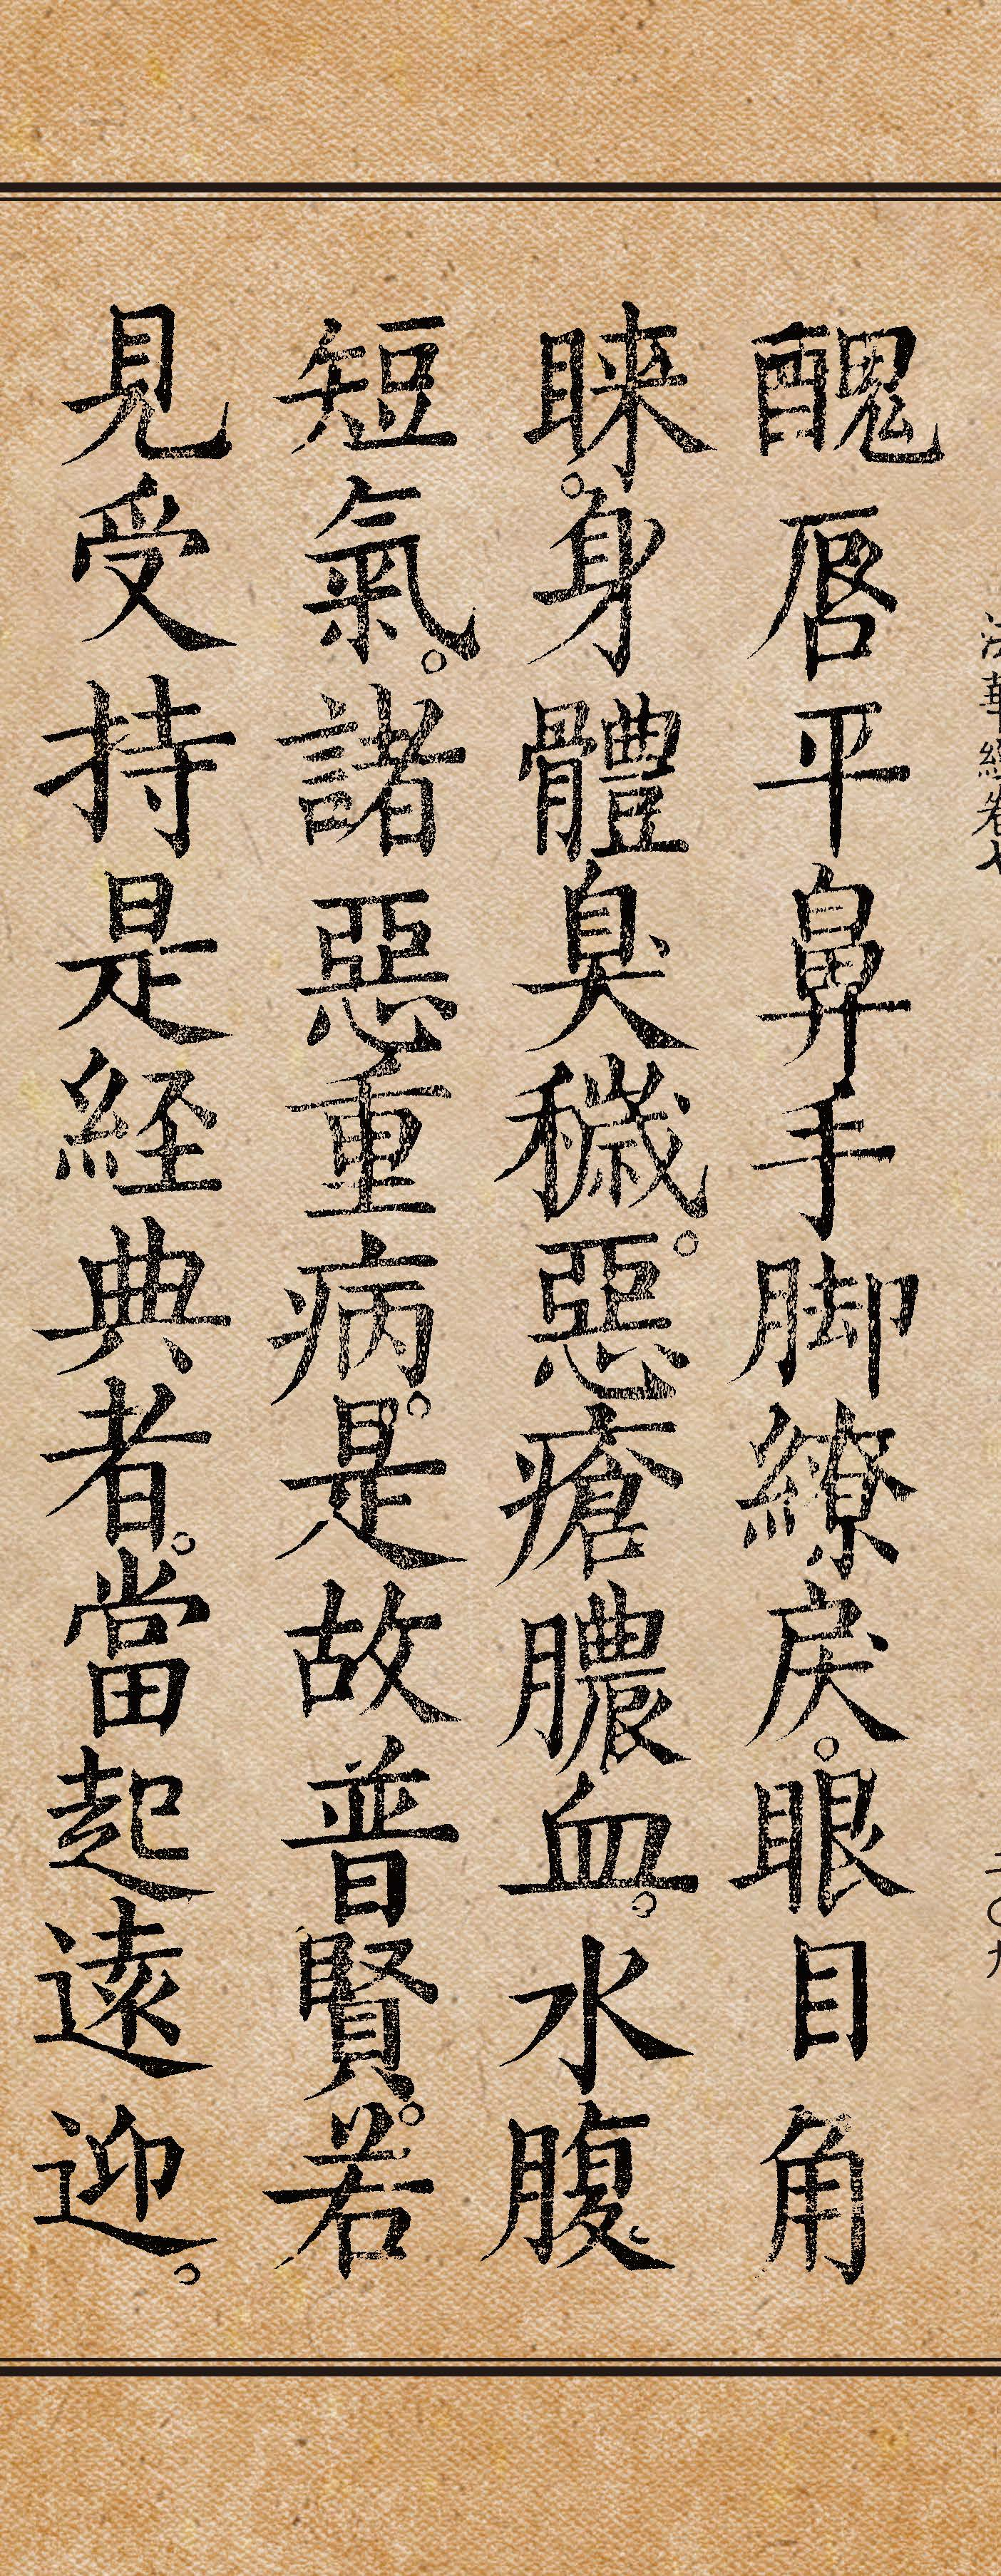 醜唇平鼻手脚繚戾。眼目角
睞。身體臭穢。惡瘡膿血。水腹
短氣。諸惡重病。是故普賢。若
見受持是経典者。當起遠迎。